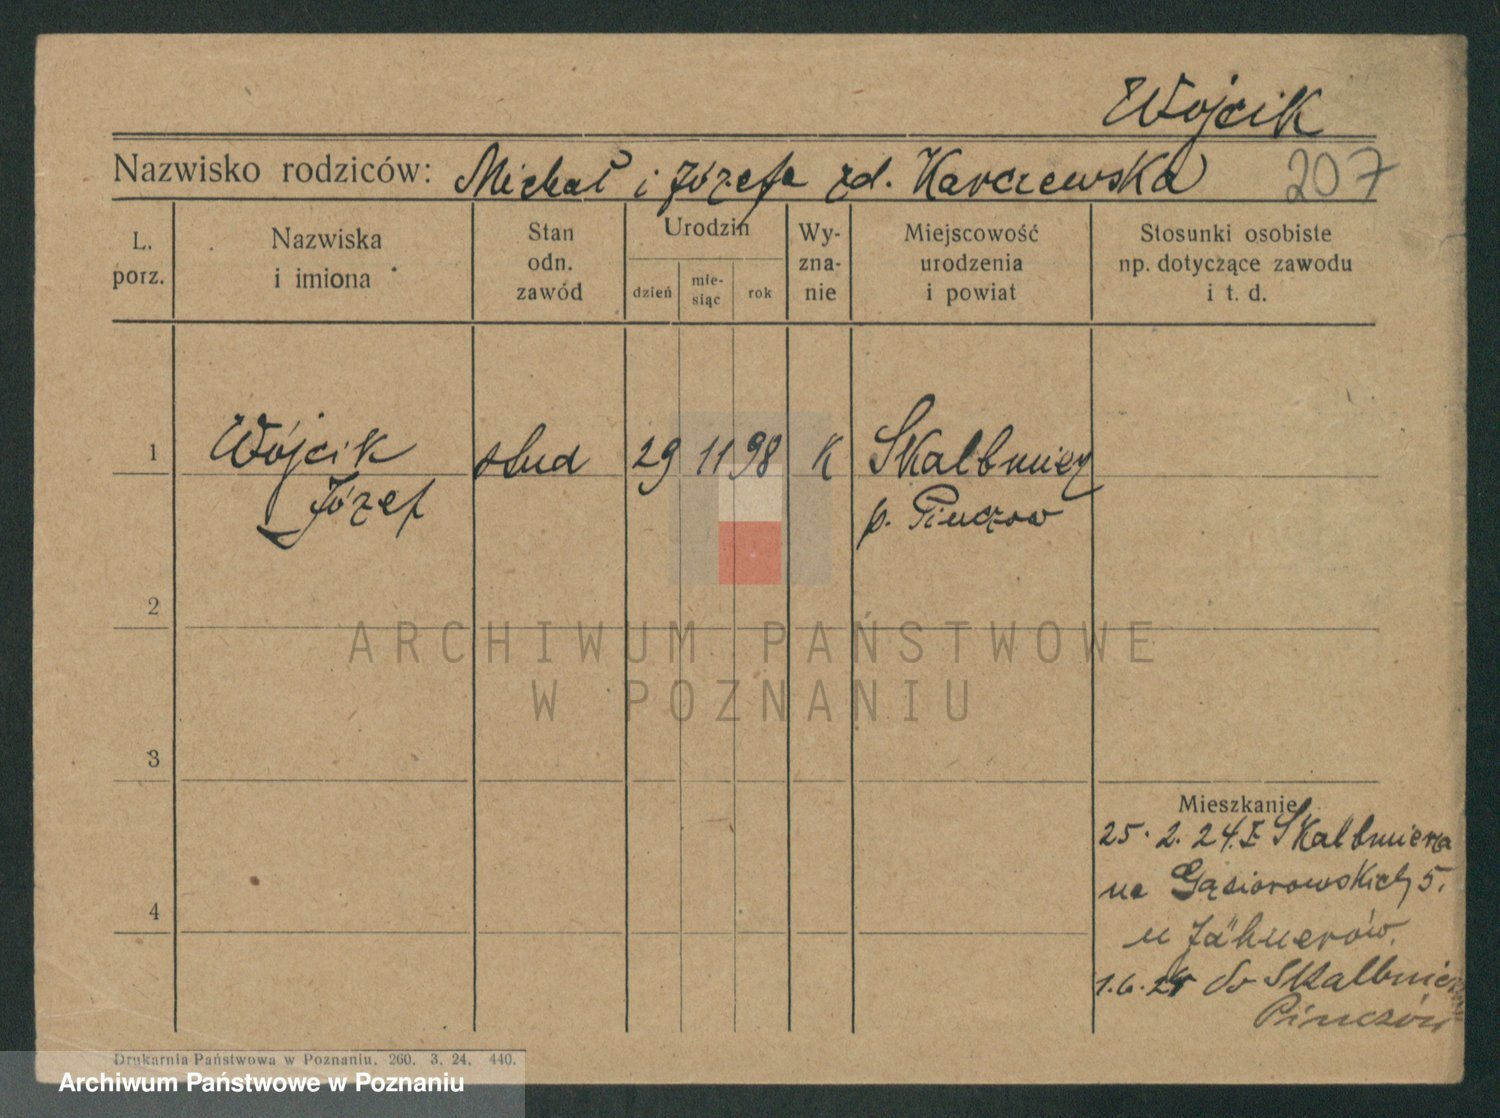 Wójcik
Nazwisko rodziców: Michał i Józefa zd. Karczewska 207
L. porz.
Nazwiska i imiona
Stan odn. zawód
Urodzin
dzień
mie-
siąc
rok
Wy-
zna-
nie
Miejscowość urodzenia i powiat
Stosunki osobiste np. dotyczące zawodu i t. d.
1 Wójcik stud 29 11 98 K Skalbmierz
Józef p. Pinczow
2
ARCHIWUM PAŃSTWOWE
W POZNANIU
3
Mieszkanie
25. 2. 24. Skalbmierza
Gąsiorowskich 5.
u Jähnerów
4
1.6.24 do
Pinczów
Drukarnia Państwowa w Poznaniu. 260. 3. 24. 440.
Archiwum Państwowe w Poznaniu